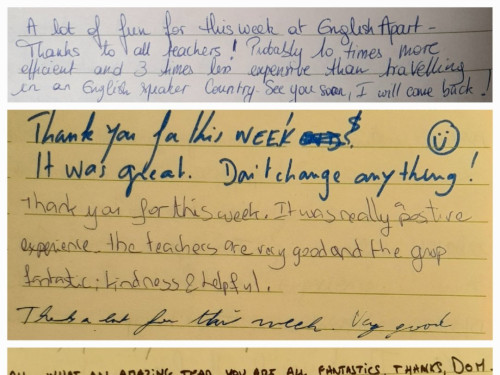 A lot of fun for this week at English Apart -
Thanks to all teachers! Probably 10 times more
efficient and 3 times less expensive than travelling
in an English speaker Country. See you soon, I will come back!
Thank you for this WEEK $!
It was great. Don't change anything!
Thank you for this week. It was really a postive
experience. the teachers are very good and the group
fantastic; kindness & helpful.
Thanks a lot for this week. Very good
WHAT AN AMAZING TEAM YOU ARE ALL FANTASTICS. THANKS, DOM.